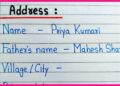 Address :
Name - Priya Kumari
Father's name - Mahesh
Village / City -